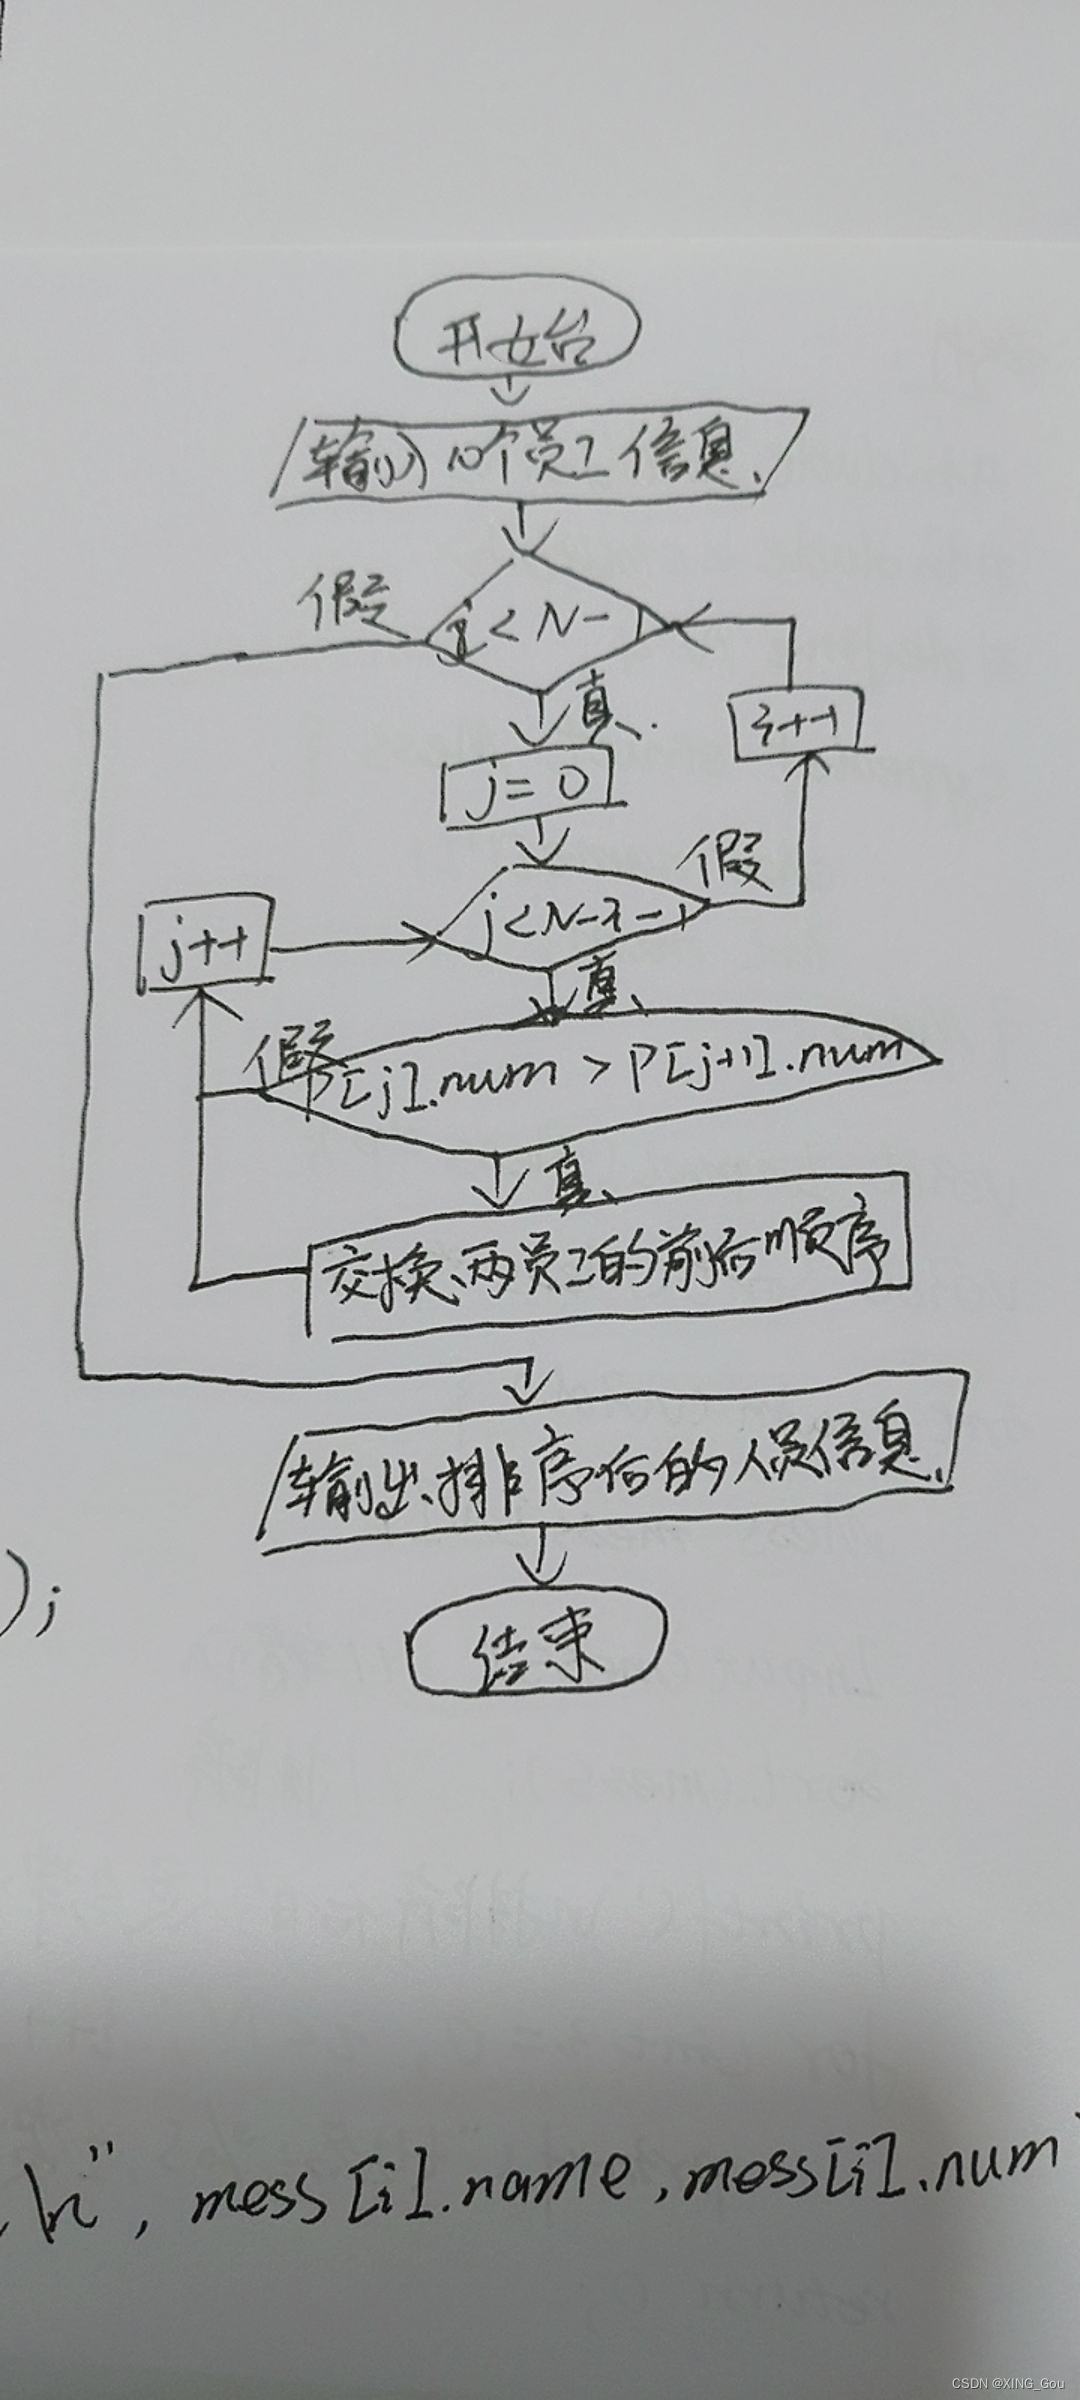 开始
输入10个员工信息
i<N-1
假
真
i++
j=0
j<N-i-1
假
j++
真
P[j].num > P[j+1].num
假
真
交换两员工的前后顺序
输出排序后的人员信息
);
结束
\n", mess[i].name, mess[i].num
CSDN @XING_Gou